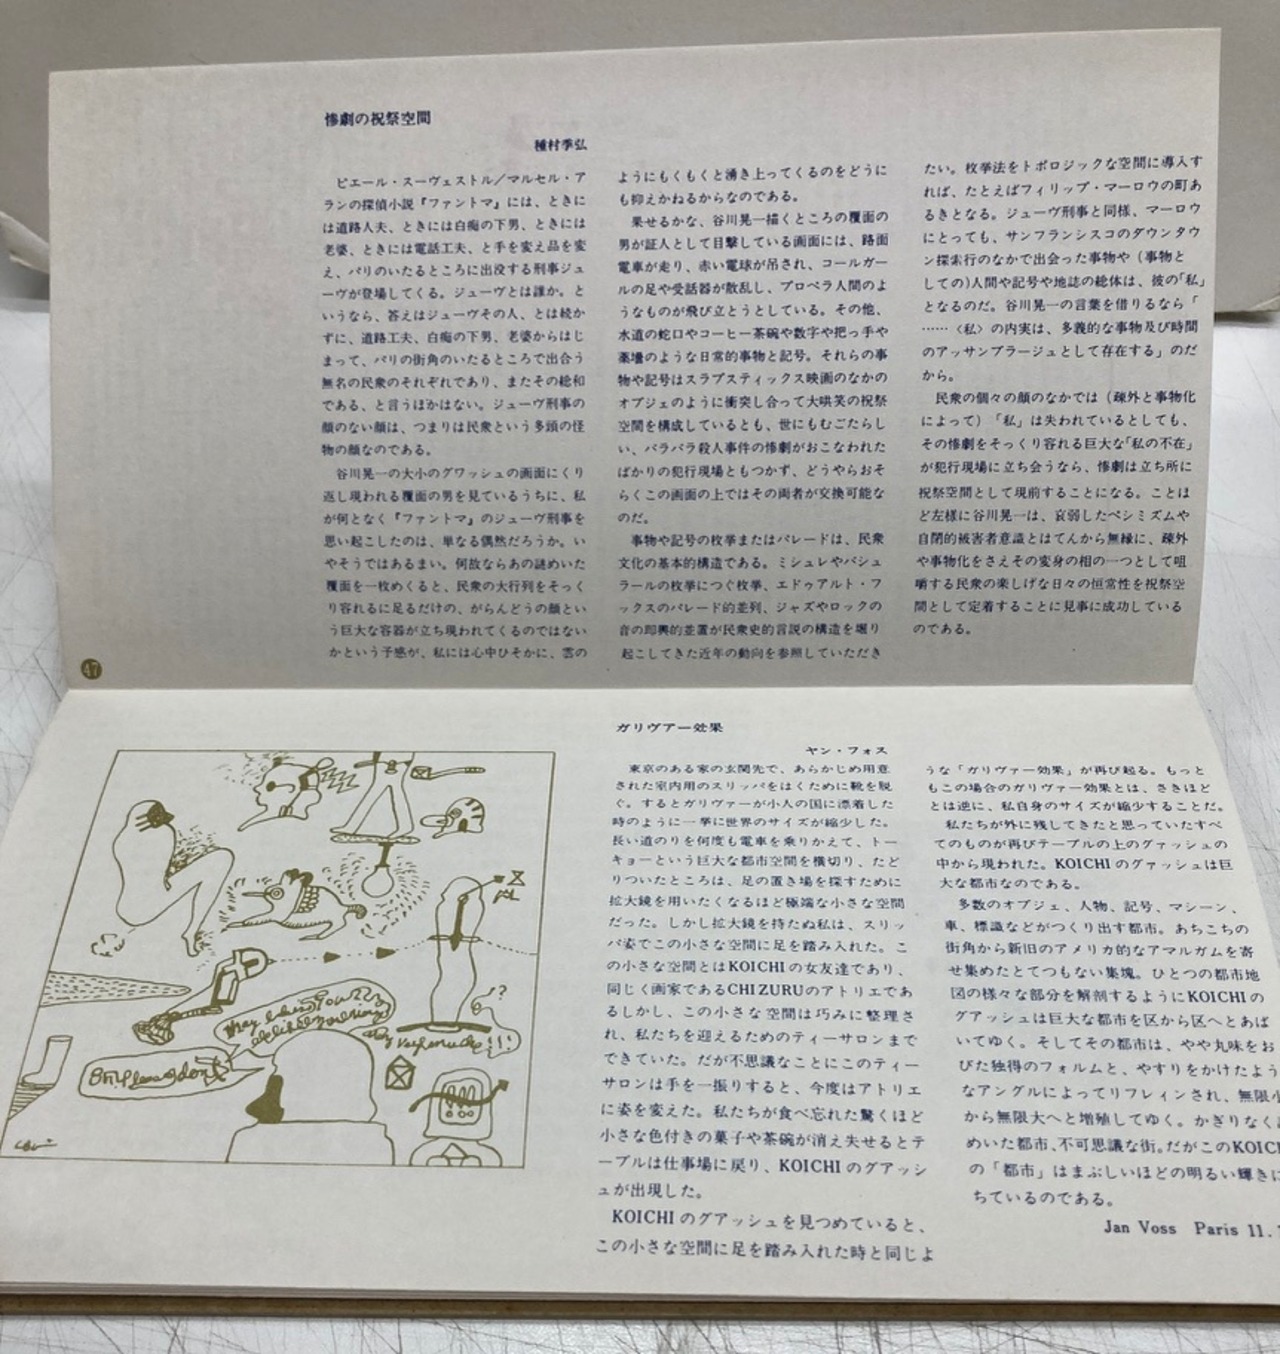 惨劇の祝祭空間
種村季弘
ピエール・スーヴェストル／マルセル・ア
ランの探偵小説『ファントマ』には、ときに
は道路人夫、ときには白痴の下男、ときには
老婆、ときには電話工夫、と手を変え品を変
え、パリのいたるところに出没する刑事ジュ
ーヴが登場してくる。ジューヴとは誰か。と
いうなら、答えはジューヴその人、とは続か
ずに、道路工夫、白痴の下男、老婆からはじ
まって、パリの街角のいたるところで出合う
無名の民衆のそれぞれであり、またその総和
である、と言うほかはない。ジューヴ刑事の
顔のない顔は、つまりは民衆という多頭の怪
物の顔なのである。
谷川晃一の大小のグワッシュの画面にくり
返し現われる覆面の男を見ているうちに、私
が何となく『ファントマ』のジューヴ刑事を
思い起こしたのは、単なる偶然だろうか。い
やそうではあるまい。何故ならあの謎めいた
覆面を一枚めくると、民衆の大行列をそっく
り容れるに足るだけの、がらんどうの顔とい
う巨大な容器が立ち現われてくるのではない
かという予感が、私には心中ひそかに、雲の
ようにもくもくと湧き上ってくるのをどうに
も抑えかねるからなのである。
果せるかな、谷川晃一描くところの覆面の
男が証人として目撃している画面には、路面
電車が走り、赤い電球が吊され、コールガー
ルの足や受話器が散乱し、プロペラ人間のよ
うなものが飛び立とうとしている。その他、
水道の蛇口やコーヒー茶碗や数字や把っ手や
薬壜のような日常的事物と記号。それらの事
物や記号はスラブスティックス映画のなかの
オブジェのように衝突し合って大哄笑の祝祭
空間を構成しているとも、世にもむごたらし
い、バラバラ殺人事件の惨劇がおこなわれた
ばかりの犯行現場ともつかず、どうやらおそ
らくこの画面の上ではその両者が交換可能な
のだ。
事物や記号の枚挙またはパレードは、民衆
文化の基本的構造である。ミシュレやバシュ
ラールの枚挙につぐ枚挙、エドゥアルト・フ
ックスのパレード的並列、ジャズやロックの
音の即興的並置が民衆史的言説の構造を堀り
起こしてきた近年の動向を参照していただき
たい。枚挙法をトポロジックな空間に導入す
れば、たとえばフィリップ・マーロウの町あ
るきとなる。ジューヴ刑事と同様、マーロウ
にとっても、サンフランシスコのダウンタウ
ン探索行のなかで出会った事物や（事物と
しての）人間や記号や地誌の総体は、彼の「私」
となるのだ。谷川晃一の言葉を借りるなら「
……〈私〉の内実は、多義的な事物及び時間
のアッサンブラージュとして存在する」のだ
から。
民衆の個々の顔のなかでは（疎外と事物化
によって）「私」は失われているとしても、
その惨劇をそっくり容れる巨大な「私の不在」
が犯行現場に立ち会うなら、惨劇は立ち所に
祝祭空間として現前することになる。ことほ
ど左様に谷川晃一は、哀弱したペシミズムや
自閉的被害者意識とはてんから無縁に、疎外
や事物化をさえその変身の相の一つとして咀
嚼する民衆の楽しげな日々の恒常性を祝祭空
間として定着することに見事に成功している
のである。
47
ガリヴアー効果
ヤン・フォス
東京のある家の玄関先で、あらかじめ用意
された室内用のスリッパをはくために靴を脱
ぐ。するとガリヴァーが小人の国に漂着した
時のように一挙に世界のサイズが縮少した。
長い道のりを何度も電車を乗りかえて、トー
キョーという巨大な都市空間を横切り、たど
りついたところは、足の置き場を探すために
拡大鏡を用いたくなるほど極端な小さな空間
だった。しかし拡大鏡を持たぬ私は、スリッ
パ姿でこの小さな空間に足を踏み入れた。こ
の小さな空間とはKOICHIの女友達であり、
同じく画家であるCHIZURUのアトリエであ
るしかし、この小さな空間は巧みに整理さ
れ、私たちを迎えるためのティーサロンまで
できていた。だが不思議なことにこのティー
サロンは手を一振りすると、今度はアトリエ
に姿を変えた。私たちが食べ忘れた驚くほど
小さな色付きの菓子や茶碗が消え失せるとテ
ーブルは仕事場に戻り、KOICHIのグアッシ
ュが出現した。
KOICHIのグアッシュを見つめていると、
この小さな空間に足を踏み入れた時と同じよ
うな「ガリヴァー効果」が再び起る。もっと
もこの場合のガリヴァー効果とは、さきほど
とは逆に、私自身のサイズが縮少することだ。
私たちが外に残してきたと思っていたすべ
てのものが再びテーブルの上のグァッシュの
中から現われた。KOICHIのグァッシュは巨
大な都市なのである。
多数のオブジェ、人物、記号、マシーン、
車、標識などがつくり出す都市。あちこちの
街角から新旧のアメリカ的なアマルガムを寄
せ集めたとてつもない集塊。ひとつの都市地
図の様々な部分を解剖するようにKOICHIの
グアッシュは巨大な都市を区から区へとあば
いてゆく。そしてその都市は、やや丸味をお
びた独得のフォルムと、やすりをかけたよう
なアングルによってリフレィンされ、無限小
から無限大へと増殖してゆく。かぎりなく
めいた都市、不可思議な街。だがこのKOICH
の「都市」はまぶしいほどの明るい輝きに
ちているのである。
Jan Voss Paris 11.